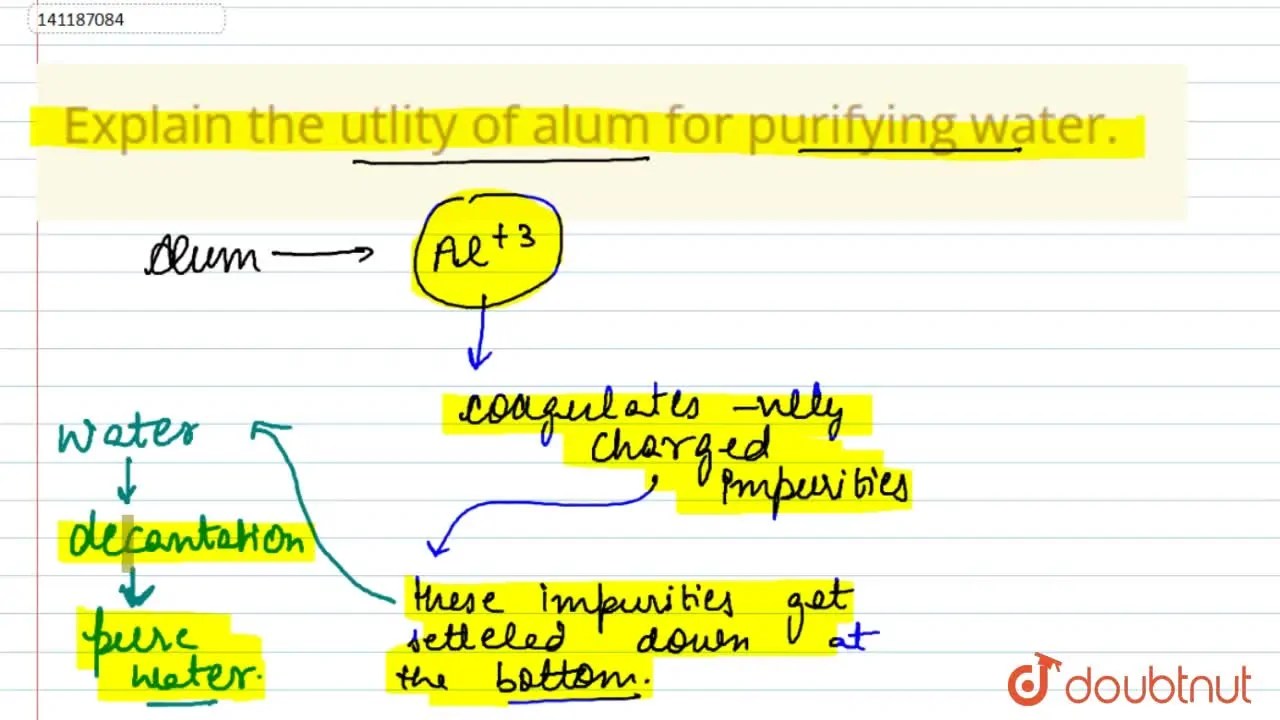 141187084
Explain the utlity of alum for purifying water.
Alum → Al+3
coagulates -vely
charged
impurities
these impurities get
setteled down at
the bottom.
water
decantation
pure
water.
doubtnut